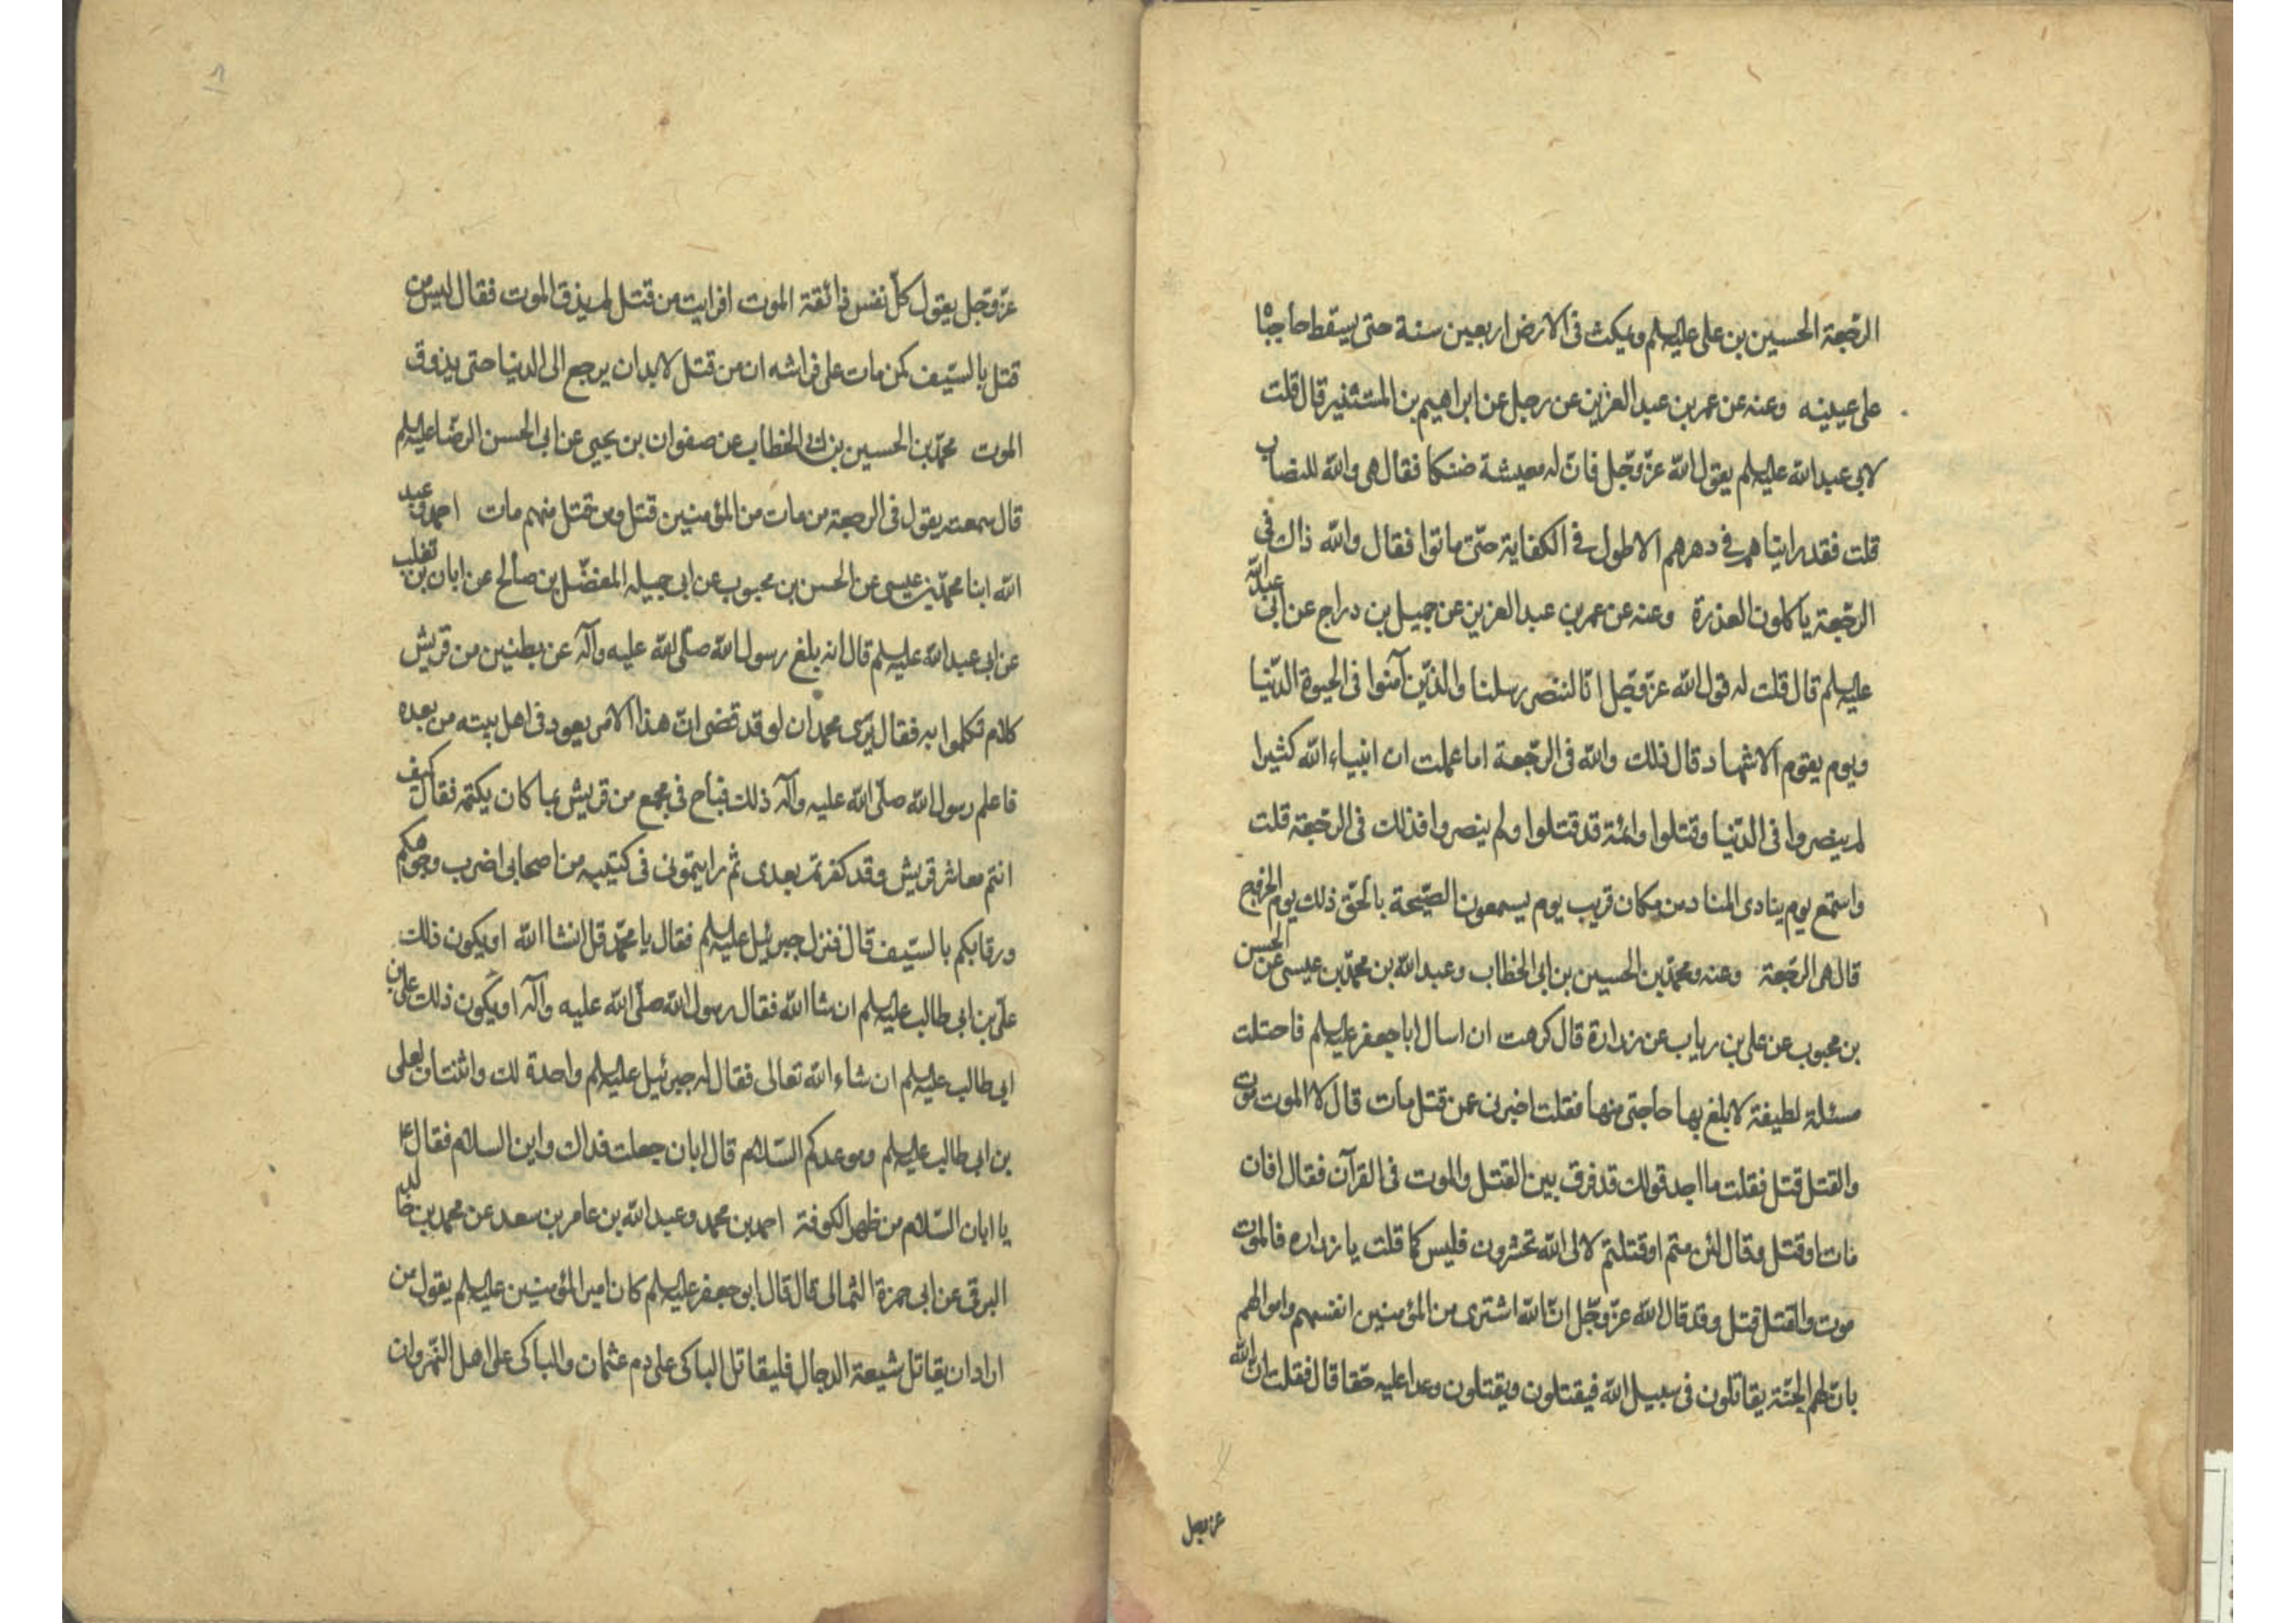 الرجعة الحسين بن علی علیهلم ویمکث فی الارض اربعین سنة حتی یسقط حاجباه
علی عینیه وعنه عن عمر بن عبد العزیز عن رجل عن ابراهیم بن المستنیر قال قلت
لابی عبد الله علیهلم یقول الله عزّ وجّل فانّ له معیشة ضنکا فقال هی والله للنصاب
قلت فقد رایناهم فی دهرهم الاطول فی الکفایة حتّی ماتوا فقال والله ذاک فی
الرجعة یاکلون العذرة وعنه عن عمر بن عبد العزیز عن جمیل بن دراج عن ابی عبد الله
علیهلم قال قلت له قول الله عزّ وجّل انّا لننصر رسلنا والذین آمنوا فی الحیوة الدّنیا
ویوم یقوم الاشهاد قال ذلک والله فی الرّجعة اما علمت ان انبیاء الله کثیرا
لم ینصروا فی الدّنیا وقتلوا وائمّة قد قتلوا ولم ینصروا فذلک فی الرّجعة قلت
واستمع یوم ینادی المناد من مکان قریب یوم یسمعون الصّیحة بالحّق ذلک یوم الخروج
قال هی الرّجعة وعنه ومحمّد بن الحسین بن ابی الخطاب وعبد الله بن محمّد بن عیسی عن الحسن
بن محبوب عن علی بن ریاب عن زرارة قال کرهت ان اسال ابا جعفر علیهلم فاحتلت
مسئلة لطیفة لابلغ بها حاجتی منها فقلت اخبرنی عمن قتل مات قال لا الموت موت
والقتل قتل فقلت ما اجد قولک قد فرق بین القتل والموت فی القرآن فقال افان
مات او قتل وقال لئن متم او قتلتم لالی الله تحشرون فلیس کما قلت یا زراره فالموت
موت والقتل قتل وقد قال الله عزّ وجّل انّ الله اشتری من المؤمنین انفسهم واموالهم
بانّ لهم الجنّة یقاتلون فی سبیل الله فیقتلون ویقتلون وعدا علیه حّقا قال فقلت ان الله
عز وجل
عزّ وجّل یقول کلّ نفس ذائقة الموت افرایت من قتل لم یذق الموت فقال لیس من
قتل بالسّیف کمن مات علی فراشه ان من قتل لابد ان یرجع الی الدنیا حتی یذوق
الموت محمّد بن الحسین بن ابی الخطاب عن صفوان بن یحیی عن ابی الحسن الرضا علیهلم
قال سمعته یقول فی الرجعة من مات من المؤمنین قتل ومن قتل منهم مات احمد وعبد
الله ابنا محمّد بن عیسی عن الحسن بن محبوب عن ابی جمیله المفضّل بن صالح عن ابان بن تغلب
عن ابی عبد الله علیهلم قال انه بلغ رسول الله صلّی الله علیه وآله عن بطنین من قریش
کلام تکلموا به فقال یری محمد ان لو قد قضی انّ هذا الامر یعود فی اهل بیته من بعده
فاعلم رسول الله صلّی الله علیه وآله ذلک فباح فی مجمع من قریش بما کان یکتمه فقال کیف
انتم معاشر قریش وقد کفرتم بعدی ثم رایتمونی فی کتیبه من اصحابی اضرب وجوهکم
ورقابکم بالسّیف قال فنزل جبرئیل علیهلم فقال یا محمّد قل انشا الله او یکون ذلک
علّی بن ابی طالب علیهلم ان شا الله فقال رسول الله صلّی الله علیه وآله او یکون ذلک علی بن
ابی طالب علیهلم ان شاء الله تعالی فقال له جبرئیل علیهلم واحدة لک واثنتان لعلی
بن ابی طالب علیهلم وموعدکم السّلام قال ابان جعلت فداک واین السلام فقال ع
یا ابان السّلام من ظهر الکوفة احمد بن محمد وعبد الله بن عامر بن سعد عن محمد بن خالد
البرقی عن ابی حمزة الثمالی قال قال ابو جعفر علیهلم کان امیر المؤمنین علیهلم یقول من
اراد ان یقاتل شیعة الدجال فلیقاتل الباکی علی دم عثمان والباکی علی اهل النّهروان